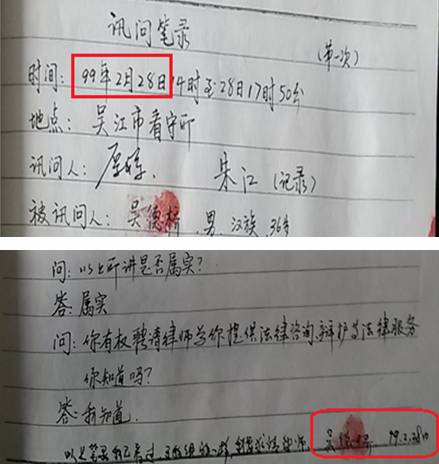 讯问笔录
(第一次)
时间: 99年2月28日14时至28日17时50分
地点: 吴江市看守所
讯问人: 朱江 (记录)
被讯问人: 吴德桥 男. 汉族 36岁
问: 以上所讲是否属实?
答: 属实
问: 你有权聘请律师为你提供法律咨询、辩护等法律服务
你知道吗?
答: 我知道.
以上笔录我已看过 99.2.28日